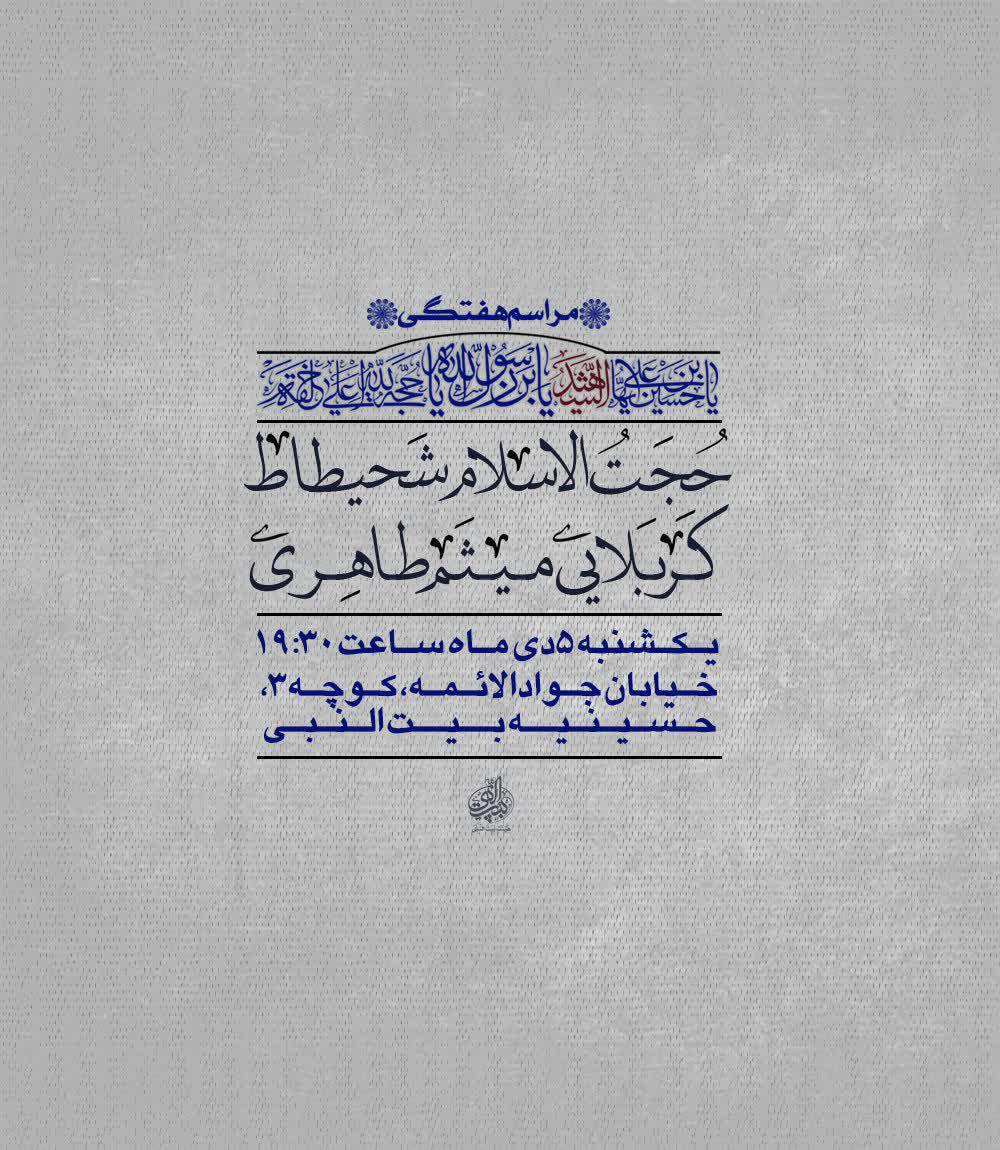 مراسم هفتگی
یا حسین بن علی ایها الشهید یا بن رسول الله یا حجة الله علی خلقه
حُجَتُ الاسلام شَحیطاط
کَربَلایی میثَم طاهِری
یکشنبه ۵ دی ماه ساعت ۱۹:۳۰
خیابان جوادالائمه، کوچه ۳،
حسینیه بیت النبی
بیت النبی